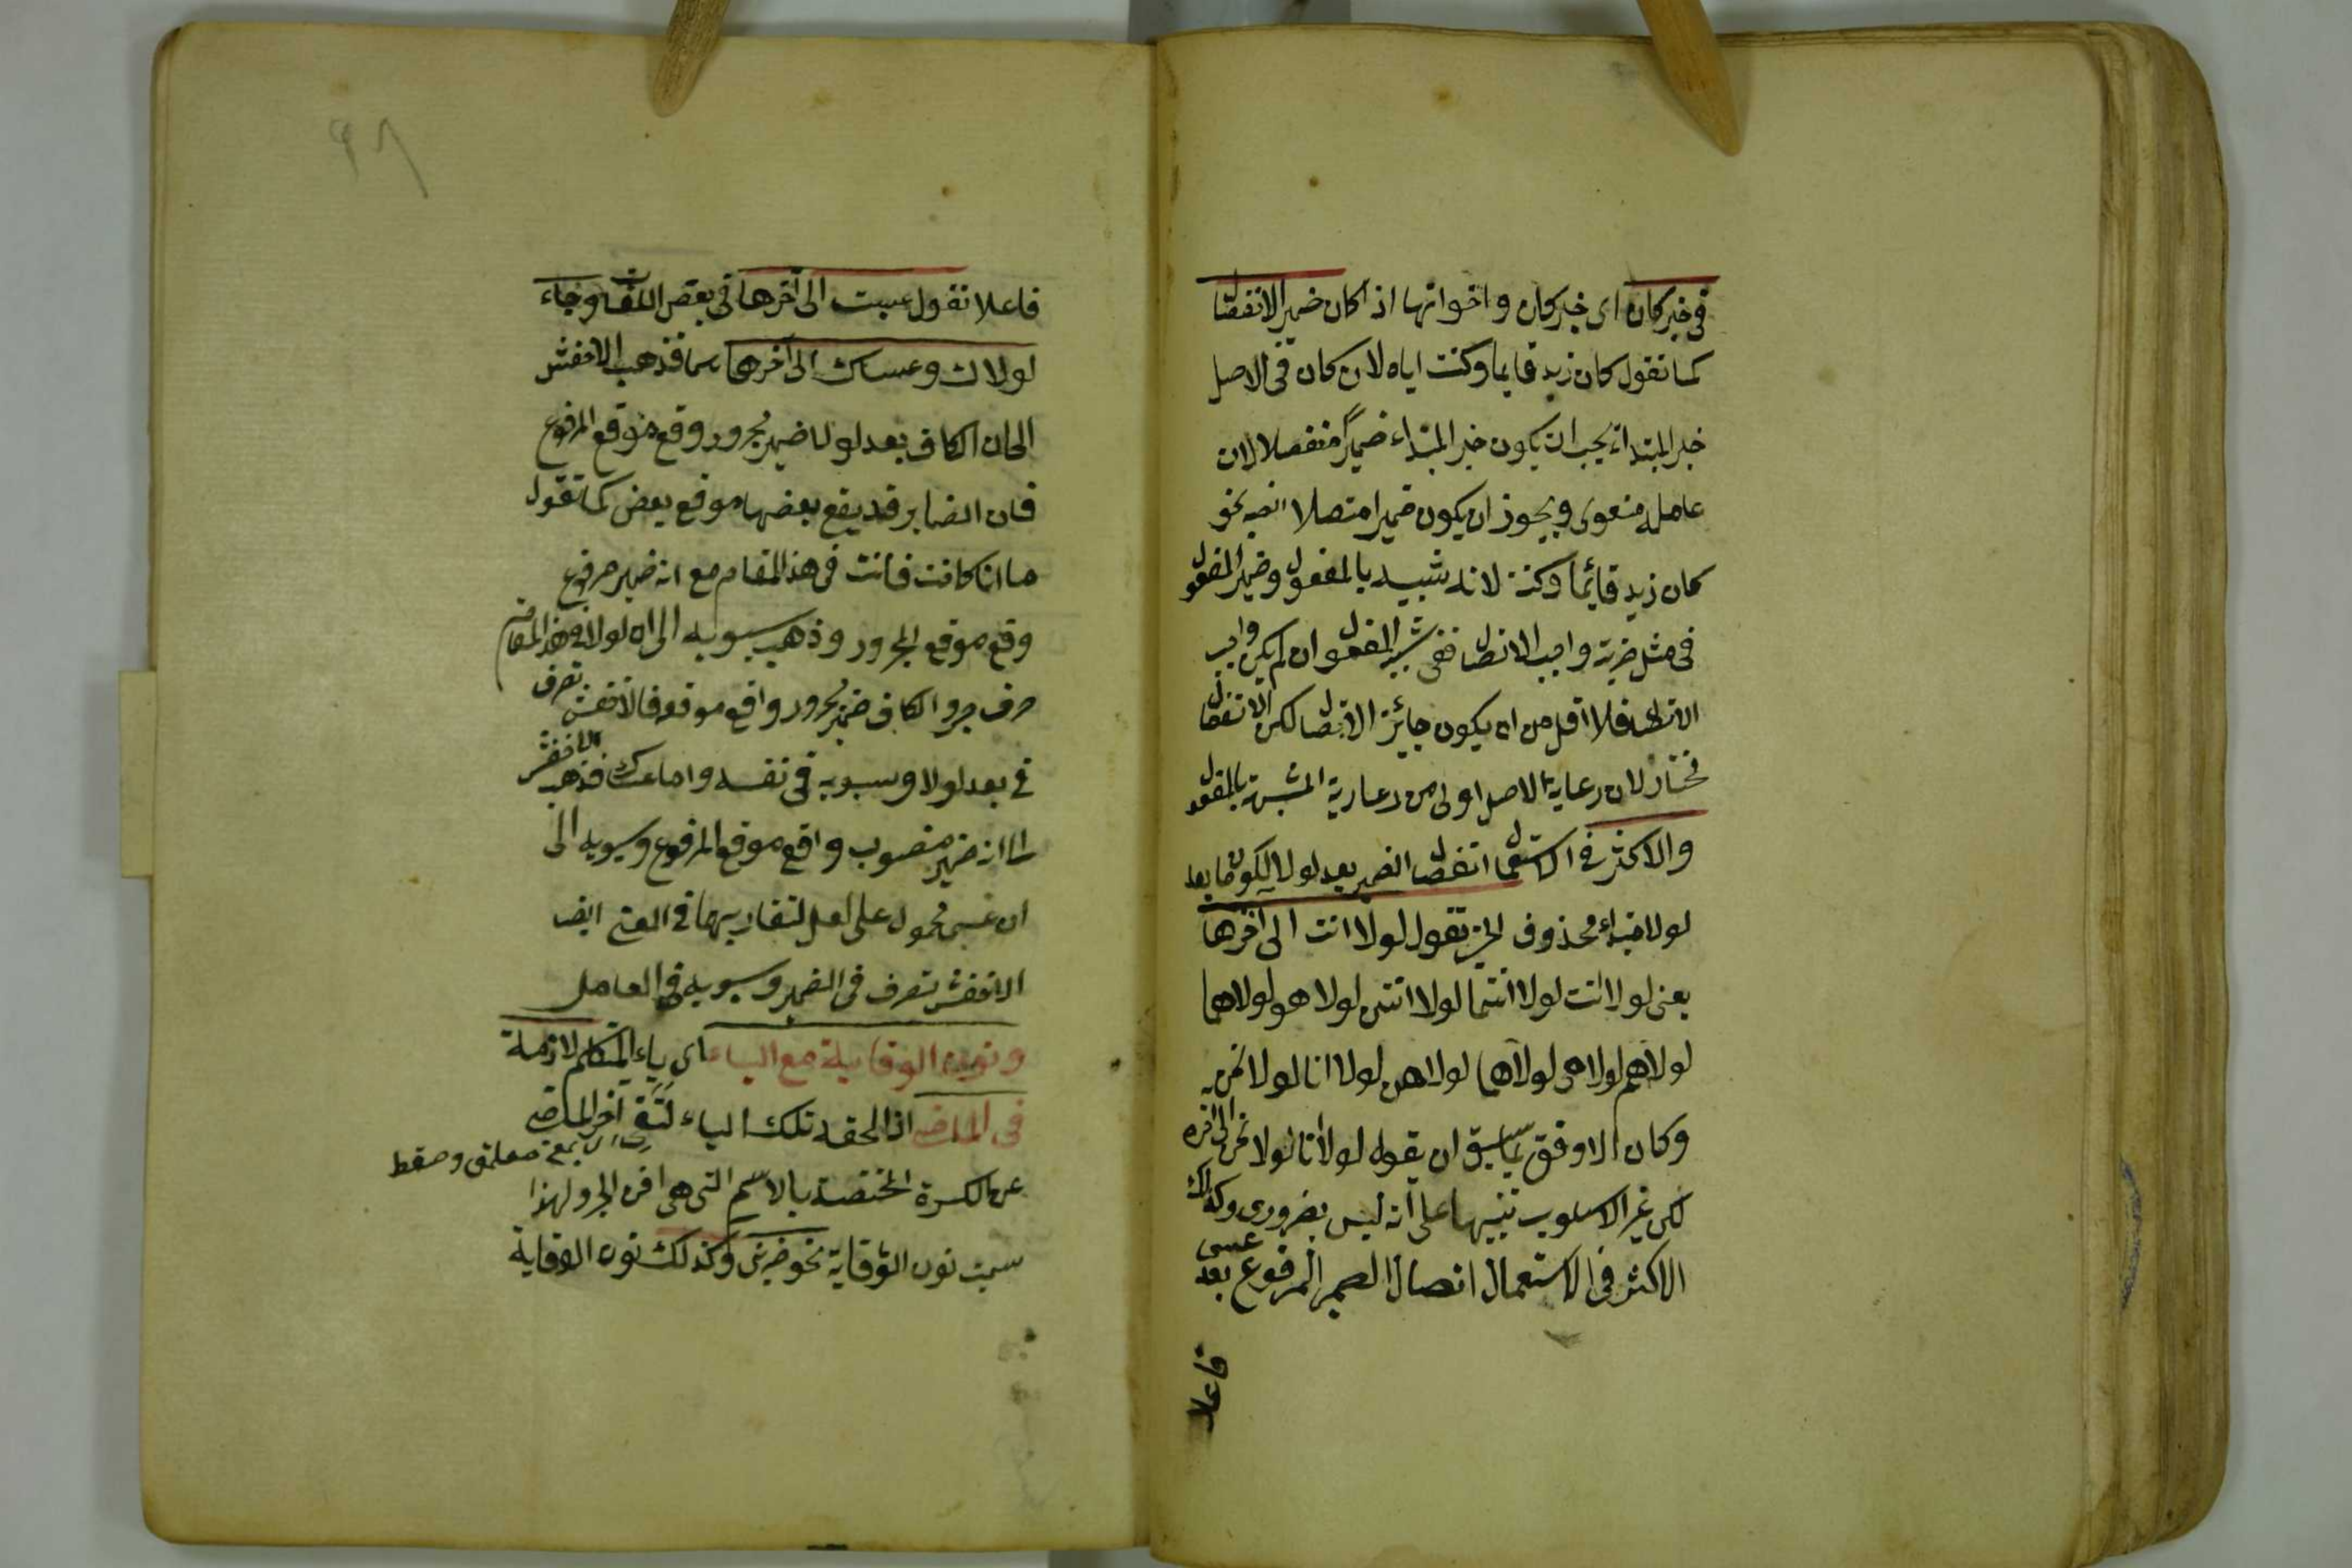 فى خبر كان اى خبر كان واخواتها اذا كان ضميرا الانفصال
كما تقول كان زيد قايما وكنت اياه لان كان فى الاصل
خبر المبتداء يجب ان يكون خبر المبتداء ضميرًا منفصلا لان
عامله معنوى ويجوز ان يكون ضميرا متصلا ايضه نحو
كان زيد قائما وكنته لانه شبيه بالمفعول وضمير المفعول
فى مثل ضربته واجب الاتصال ففى شبه المفعول وان لم يكن واجب
الاتصال فلا اقل من ان يكون جائز الاتصال لكن الانفصال
مختار لان رعاية الاصل اولى من رعاية المشبهة بالمفعول
والاكثر فى الاستعمال انفصال الضمير بعد لولا لكون ما بعد
لولا مبتداء محذوف الخبر تقول لولا انت الى آخرها
يعنى لولا انت لولا انتما لولا انتن لولا هو لولاهما
لولاهم لولا هى لولاهما لولاهن لولا انا لولا نحن
وكان الاوفق بما سبق ان يقول لولا انا لولا نحن الى اخره
لكن غير الاسلوب تنبيها على انه ليس بضرورى وكذلك
الاكثر فى الاستعمال اتصال الضمير المرفوع بعد عسى
فاعلا
٩٦
فاعلا تقول عسيت الى آخرها فى بعض اللغات وجاء
لولاك وعساك الى آخرهما فذهب الاخفش
الى ان الكاف بعد لولا ضمير مجرور وقع موقع المرفوع
فان الضماير قد يقع بعضها موقع بعض كما تقول
ما انا كانت فانت فى هذا المقام مع انه ضمير مرفوع
وقع موقع المجرور وذهب سيبويه الى ان لولا فى هذا المقام
حرف جر والكاف ضمير مجرور واقع موقعه فالاخفش تصرف
فى بعد لولا وسيبويه فى نفسه واما عساك فذهب الاخفش
الى انه ضمير منصوب واقع موقع المرفوع وسيبويه الى
ان عسى محمول على لعل لتقاربهما فى المعنى ايضا
الاخفش تصرف فى الضمير وسيبويه فى العامل
ونون الوقاية مع الياء اى ياء المتكلم لازمة
فى الماضى اذا لحقه تلك الياء لتقى آخر الماضى
عن الكسرة المختصة بالاسم التى هى اخر الجر ولهذا
سميت نون الوقاية نحو ضربنى وكذلك نون الوقاية